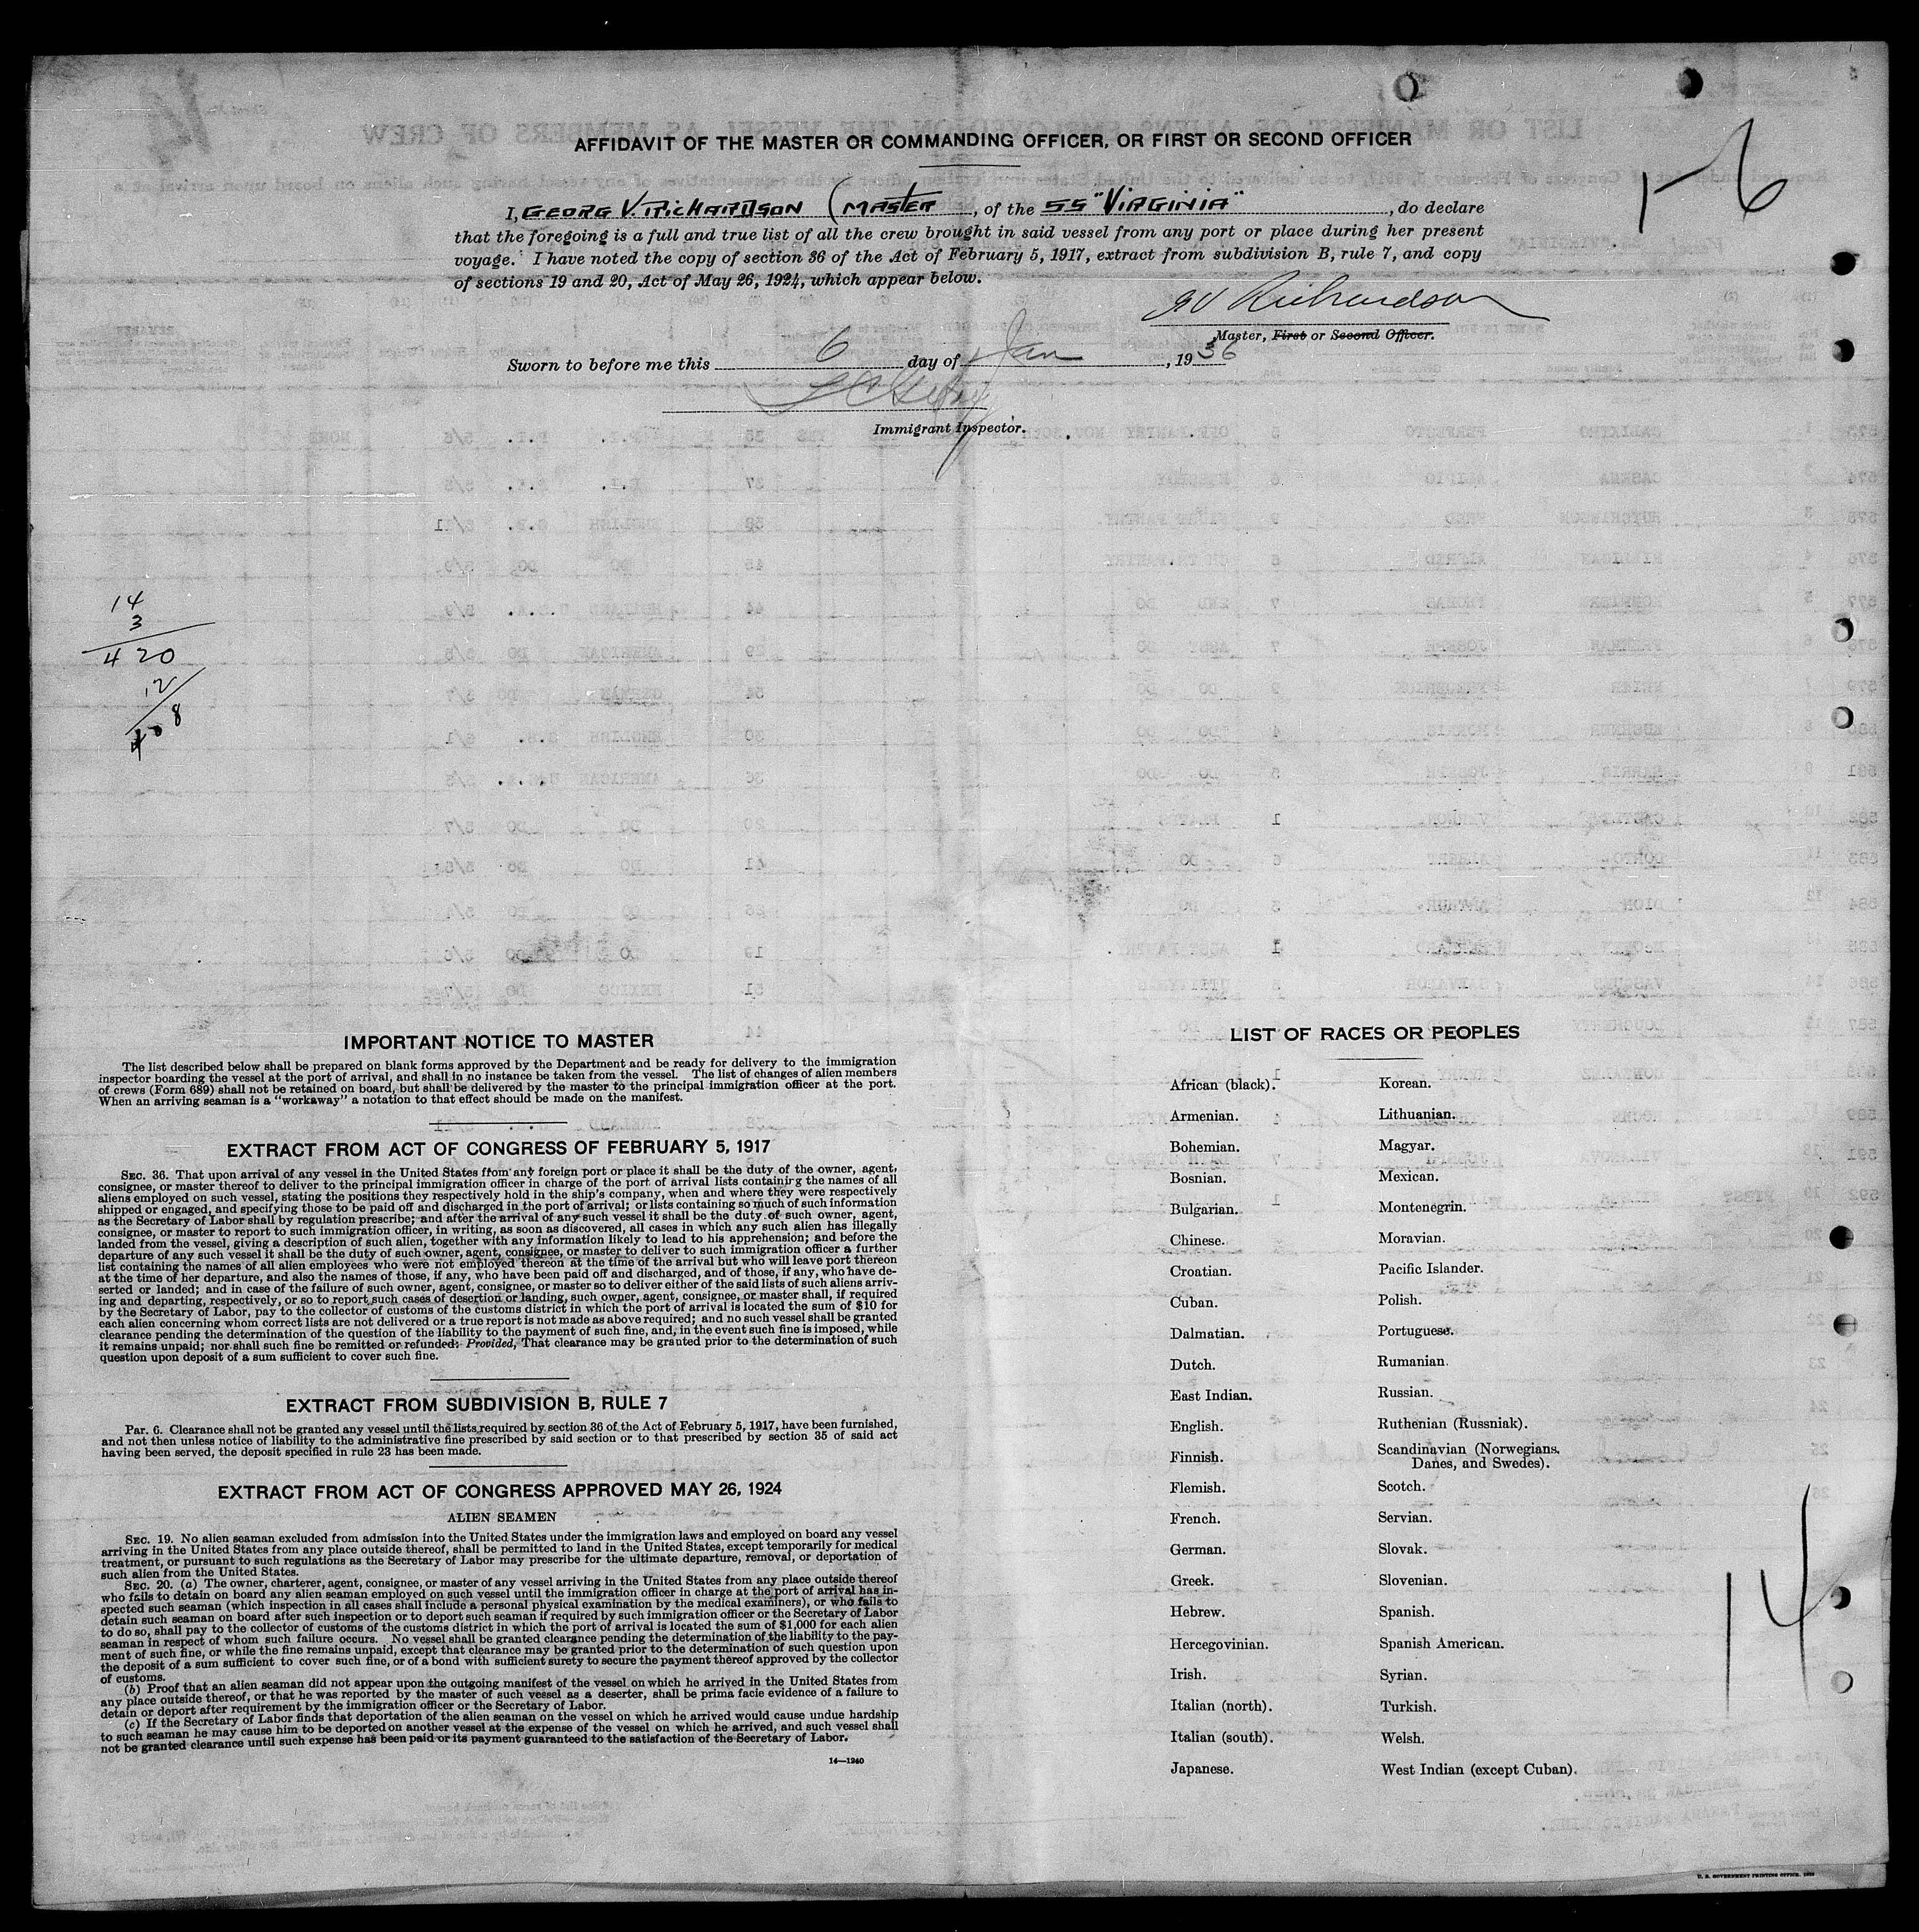 AFFIDAVIT OF THE MASTER OR COMMANDING OFFICER, OR FIRST OR SECOND OFFICER
1-6
I, GEORG V. RICHARDSON (MASTER, of the SS "VIRGINIA", do declare
that the foregoing is a full and true list of all the crew brought in said vessel from any port or place during her present
voyage. I have noted the copy of section 36 of the Act of February 5, 1917, extract from subdivision B, rule 7, and copy
of sections 19 and 20, Act of May 26, 1924, which appear below.
GV Richardson
Master, First or Second Officer.
Sworn to before me this 6 day of Jan, 1936
Immigrant Inspector.
14
3
420
12
408
IMPORTANT NOTICE TO MASTER
The list described below shall be prepared on blank forms approved by the Department and be ready for delivery to the immigration
inspector boarding the vessel at the port of arrival, and shall in no instance be taken from the vessel. The list of changes of alien members
of crews (Form 689) shall not be retained on board, but shall be delivered by the master to the principal immigration officer at the port.
When an arriving seaman is a "workaway" a notation to that effect should be made on the manifest.
EXTRACT FROM ACT OF CONGRESS OF FEBRUARY 5, 1917
SEC. 36. That upon arrival of any vessel in the United States from any foreign port or place it shall be the duty of the owner, agent,
consignee, or master thereof to deliver to the principal immigration officer in charge of the port of arrival lists containing the names of all
aliens employed on such vessel, stating the positions they respectively hold in the ship's company, when and where they were respectively
shipped or engaged, and specifying those to be paid off and discharged in the port of arrival; or lists containing so much of such information
as the Secretary of Labor shall by regulation prescribe; and after the arrival of any such vessel it shall be the duty of such owner, agent,
consignee, or master to report to such immigration officer, in writing, as soon as discovered, all cases in which any such alien has illegally
landed from the vessel, giving a description of such alien, together with any information likely to lead to his apprehension; and before the
departure of any such vessel it shall be the duty of such owner, agent, consignee, or master to deliver to such immigration officer a further
list containing the names of all alien employees who were not employed thereon at the time of the arrival but who will leave port thereon
at the time of her departure, and also the names of those, if any, who have been paid off and discharged, and of those, if any, who have de-
serted or landed; and in case of the failure of such owner, agent, consignee, or master so to deliver either of the said lists of such aliens arriv-
ing and departing, respectively, or so to report such cases of desertion or landing, such owner, agent, consignee, or master shall, if required
by the Secretary of Labor, pay to the collector of customs of the customs district in which the port of arrival is located the sum of $10 for
each alien concerning whom correct lists are not delivered or a true report is not made as above required; and no such vessel shall be granted
clearance pending the determination of the question of the liability to the payment of such fine, and, in the event such fine is imposed, while
it remains unpaid; nor shall such fine be remitted or refunded: Provided, That clearance may be granted prior to the determination of such
question upon deposit of a sum sufficient to cover such fine.
EXTRACT FROM SUBDIVISION B, RULE 7
Par. 6. Clearance shall not be granted any vessel until the lists required by section 36 of the Act of February 5, 1917, have been furnished,
and not then unless notice of liability to the administrative fine prescribed by said section or to that prescribed by section 35 of said act
having been served, the deposit specified in rule 23 has been made.
EXTRACT FROM ACT OF CONGRESS APPROVED MAY 26, 1924
ALIEN SEAMEN
SEC. 19. No alien seaman excluded from admission into the United States under the immigration laws and employed on board any vessel
arriving in the United States from any place outside thereof, shall be permitted to land in the United States, except temporarily for medical
treatment, or pursuant to such regulations as the Secretary of Labor may prescribe for the ultimate departure, removal, or deportation of
such alien from the United States.
SEC. 20. (a) The owner, charterer, agent, consignee, or master of any vessel arriving in the United States from any place outside thereof
who fails to detain on board any alien seaman employed on such vessel until the immigration officer in charge at the port of arrival has in-
spected such seaman (which inspection in all cases shall include a personal physical examination by the medical examiners), or who fails to
detain such seaman on board after such inspection or to deport such seaman if required by such immigration officer or the Secretary of Labor
to do so, shall pay to the collector of customs of the customs district in which the port of arrival is located the sum of $1,000 for each alien
seaman in respect of whom such failure occurs. No vessel shall be granted clearance pending the determination of the liability to the pay-
ment of such fine, or while the fine remains unpaid, except that clearance may be granted prior to the determination of such question upon
the deposit of a sum sufficient to cover such fine, or of a bond with sufficient surety to secure the payment thereof approved by the collector
of customs.
(b) Proof that an alien seaman did not appear upon the outgoing manifest of the vessel on which he arrived in the United States from
any place outside thereof, or that he was reported by the master of such vessel as a deserter, shall be prima facie evidence of a failure to
detain or deport after requirement by the immigration officer or the Secretary of Labor.
(c) If the Secretary of Labor finds that deportation of the alien seaman on the vessel on which he arrived would cause undue hardship
to such seaman he may cause him to be deported on another vessel at the expense of the vessel on which he arrived, and such vessel shall
not be granted clearance until such expense has been paid or its payment guaranteed to the satisfaction of the Secretary of Labor.
14—1240
LIST OF RACES OR PEOPLES
African (black).
Armenian.
Bohemian.
Bosnian.
Bulgarian.
Chinese.
Croatian.
Cuban.
Dalmatian.
Dutch.
East Indian.
English.
Finnish.
Flemish.
French.
German.
Greek.
Hebrew.
Hercegovinian.
Irish.
Italian (north).
Italian (south).
Japanese.
Korean.
Lithuanian.
Magyar.
Mexican.
Montenegrin.
Moravian.
Pacific Islander.
Polish.
Portuguese.
Rumanian.
Russian.
Ruthenian (Russniak).
Scandinavian (Norwegians,
Danes, and Swedes).
Scotch.
Servian.
Slovak.
Slovenian.
Spanish.
Spanish American.
Syrian.
Turkish.
Welsh.
West Indian (except Cuban).
14
U. S. GOVERNMENT PRINTING OFFICE